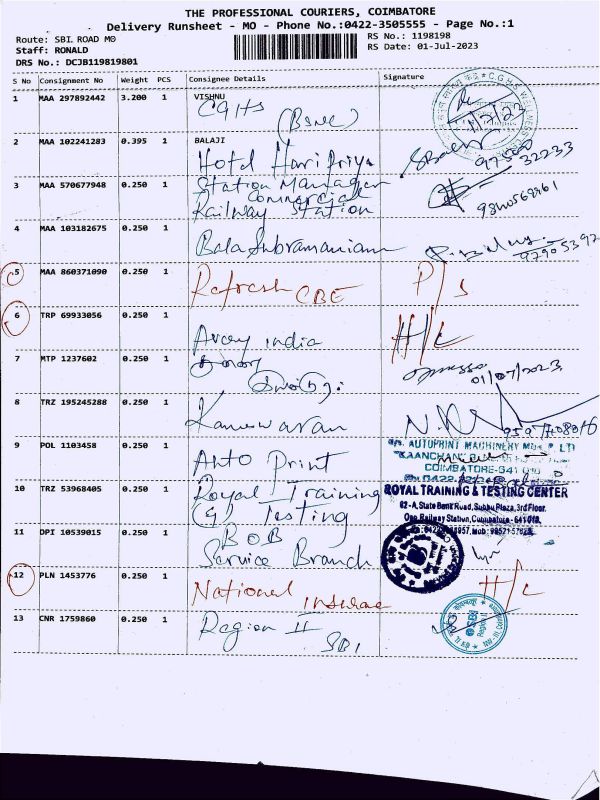 THE PROFESSIONAL COURIERS, COIMBATORE
Delivery Runsheet - MO - Phone No.:0422-3505555 - Page No.:1
Route: SBI ROAD MO
RS No.: 1198198
Staff: RONALD
RS Date: 01-Jul-2023
DRS No.: DCJB119819801
S No Consignment No Weight PCS Consignee Details Signature
1 MAA 297892442 3.200 1 VISHNU
CGHS
(BSNL)
2 MAA 102241283 0.395 1 BALAJI
Hotel Haripriya
97500
32233
3 MAA 570677948 0.250 1 Station Manager
Commercial
Railway Station
4 MAA 103182675 0.250 1
Balasubramaniam
5 MAA 860371090 0.250 1
Refresh CBE P/S
6 TRP 69933056 0.250 1
Avery india H/L
7 MTP 1237602 0.250 1
01/07/2023
8 TRZ 195245288 0.250 1
Kameswaran
9 POL 1103458 0.250 1
Auto Print
AUTOPRINT MACHINERY
COIMBATORE-641
10 TRZ 53968405 0.250 1 Royal Training
& Testing
ROYAL TRAINING & TESTING CENTER
62-A, State Bank Road, Subbu Plaza, 3rd Floor,
Opp. Railway Station, Coimbatore - 641018.
11 DPI 10539015 0.250 1 BOB
Service Branch
12 PLN 1453776 0.250 1
National H/L
13 CNR 1759860 0.250 1 Region II
SBI